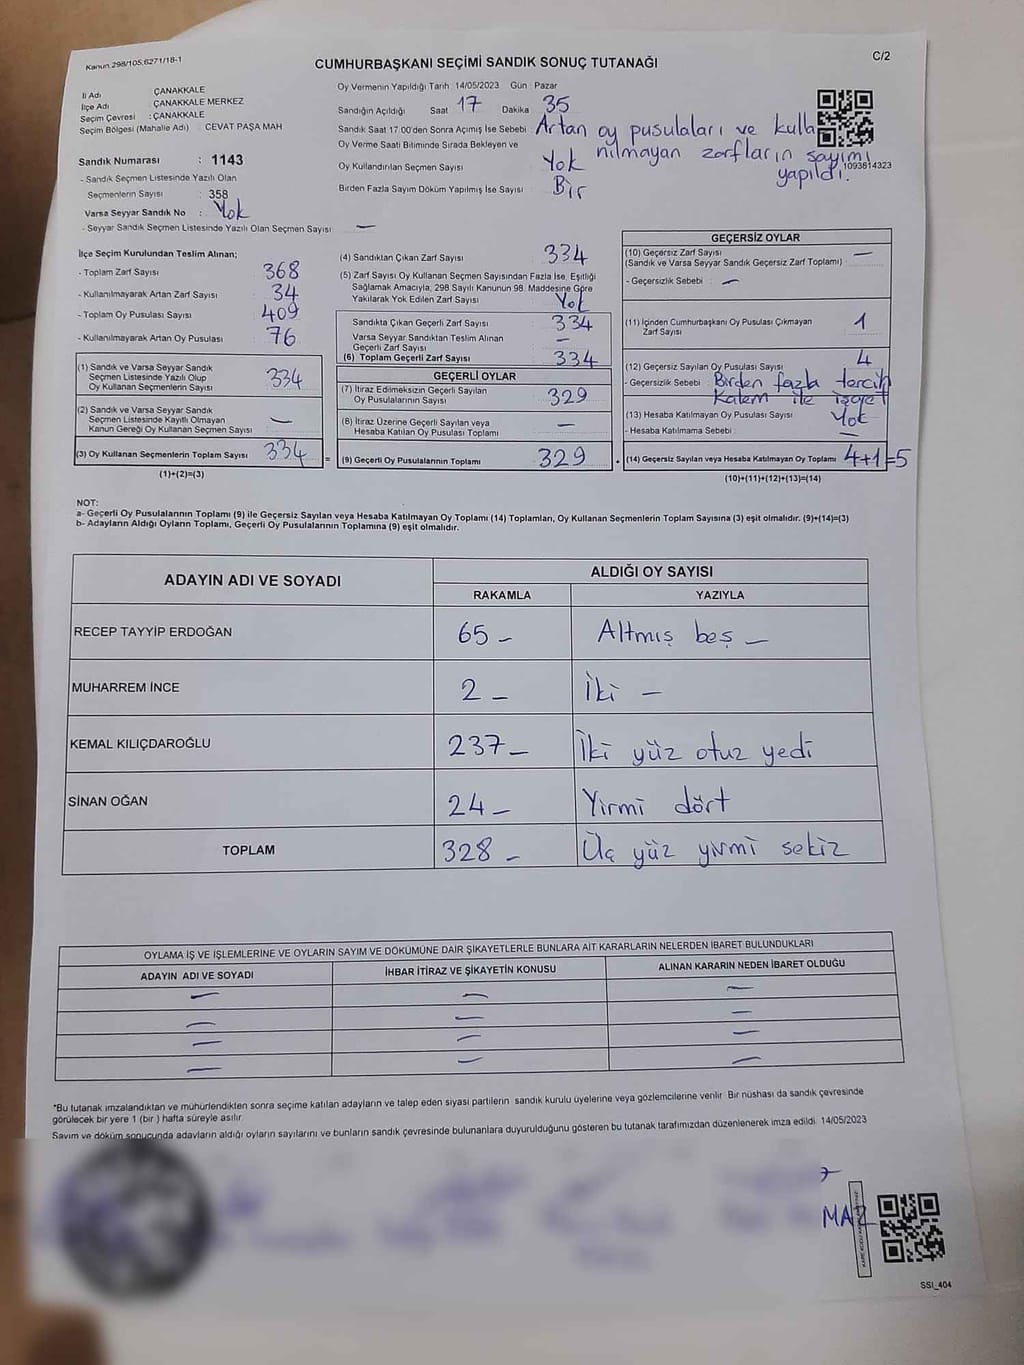 Kanun.298/105,6271/18-1
CUMHURBAŞKANI SEÇİMİ SANDIK SONUÇ TUTANAĞI
C/2
İl Adı : ÇANAKKALE
İlçe Adı : ÇANAKKALE MERKEZ
Seçim Çevresi : ÇANAKKALE
Seçim Bölgesi (Mahalle Adı) : CEVAT PAŞA MAH
Sandık Numarası : 1143
- Sandık Seçmen Listesinde Yazılı Olan
Seçmenlerin Sayısı : 358
Varsa Seyyar Sandık No : Yok
- Seyyar Sandık Seçmen Listesinde Yazılı Olan Seçmen Sayısı : —
Oy Vermenin Yapıldığı Tarih 14/05/2023 Gün : Pazar
Sandığın Açıldığı Saat 17 Dakika 35
Sandık Saat 17:00'den Sonra Açımış İse Sebebi : Artan oy pusulaları ve kulla
nılmayan zarfların sayımı
yapıldı.
1093814323
Oy Verme Saati Bitiminde Sırada Bekleyen ve
Oy Kullandırılan Seçmen Sayısı : Yok
Birden Fazla Sayım Döküm Yapılmış İse Sayısı : Bir
İlçe Seçim Kurulundan Teslim Alınan;
- Toplam Zarf Sayısı : 368
- Kullanılmayarak Artan Zarf Sayısı : 34
- Toplam Oy Pusulası Sayısı : 409
- Kullanılmayarak Artan Oy Pusulası : 76
(1) Sandık ve Varsa Seyyar Sandık
Seçmen Listesinde Yazılı Olup
Oy Kullanan Seçmenlerin Sayısı : 334
(2) Sandık ve Varsa Seyyar Sandık
Seçmen Listesinde Kayıtlı Olmayan
Kanun Gereği Oy Kullanan Seçmen Sayısı : —
(3) Oy Kullanan Seçmenlerin Toplam Sayısı : 334
(1)+(2)=(3)
=
(4) Sandıktan Çıkan Zarf Sayısı : 334
(5) Zarf Sayısı Oy Kullanan Seçmen Sayısından Fazla İse, Eşitliği
Sağlamak Amacıyla, 298 Sayılı Kanunun 98. Maddesine Göre
Yakılarak Yok Edilen Zarf Sayısı : Yok
Sandıkta Çıkan Geçerli Zarf Sayısı : 334
Varsa Seyyar Sandıktan Teslim Alınan
Geçerli Zarf Sayısı : —
(6) Toplam Geçerli Zarf Sayısı : 334
GEÇERLİ OYLAR
(7) İtiraz Edilmeksizin Geçerli Sayılan
Oy Pusulalarının Sayısı : 329
(8) İtiraz Üzerine Geçerli Sayılan veya
Hesaba Katılan Oy Pusulası Toplamı : —
(9) Geçerli Oy Pusulalarının Toplamı : 329
GEÇERSİZ OYLAR
(10) Geçersiz Zarf Sayısı : —
(Sandık ve Varsa Seyyar Sandık Geçersiz Zarf Toplamı)
- Geçersizlik Sebebi : —
(11) İçinden Cumhurbaşkanı Oy Pusulası Çıkmayan
Zarf Sayısı : 1
(12) Geçersiz Sayılan Oy Pusulası Sayısı : 4
- Geçersizlik Sebebi : Birden fazla tercih
Kalem ile işaret
(13) Hesaba Katılmayan Oy Pusulası Sayısı : Yok
- Hesaba Katılmama Sebebi : —
(14) Geçersiz Sayılan veya Hesaba Katılmayan Oy Toplamı : 4+1=5
(10)+(11)+(12)+(13)=(14)
NOT:
a- Geçerli Oy Pusulalarının Toplamı (9) ile Geçersiz Sayılan veya Hesaba Katılmayan Oy Toplamı (14) Toplamları, Oy Kullanan Seçmenlerin Toplam Sayısına (3) eşit olmalıdır. (9)+(14)=(3)
b- Adayların Aldığı Oyların Toplamı, Geçerli Oy Pusulalarının Toplamına (9) eşit olmalıdır.
ADAYIN ADI VE SOYADI ALDIĞI OY SAYISI
RAKAMLA YAZIYLA
RECEP TAYYİP ERDOĞAN 65 – Altmış beş –
MUHARREM İNCE 2 – İki –
KEMAL KILIÇDAROĞLU 237 – İki yüz otuz yedi
SİNAN OĞAN 24 – Yirmi dört
TOPLAM 328 – Üç yüz yirmi sekiz
OYLAMA İŞ VE İŞLEMLERİNE VE OYLARIN SAYIM VE DÖKÜMÜNE DAİR ŞİKAYETLERLE BUNLARA AİT KARARLARIN NELERDEN İBARET BULUNDUKLARI
ADAYIN ADI VE SOYADI İHBAR İTİRAZ VE ŞİKAYETİN KONUSU ALINAN KARARIN NEDEN İBARET OLDUĞU
— — —
— — —
— — —
— — —
*Bu tutanak imzalandıktan ve mühürlendikten sonra seçime katılan adayların ve talep eden siyasi partilerin sandık kurulu üyelerine veya gözlemcilerine verilir. Bir nüshası da sandık çevresinde
görülecek bir yere 1 (bir ) hafta süreyle asılır.
Sayım ve döküm sonucunda adayların aldığı oyların sayılarını ve bunların sandık çevresinde bulunanlara duyurulduğunu gösteren bu tutanak tarafımızdan düzenlenerek imza edildi. 14/05/2023
SSİ_404